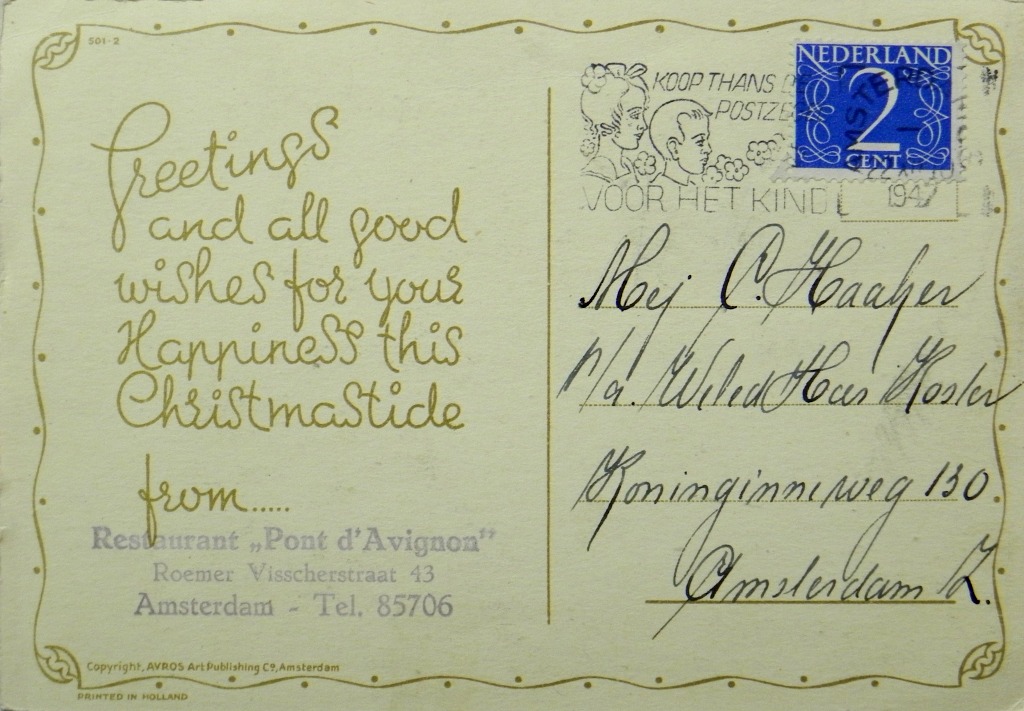 501-2
Greetings
and all good
wishes for your
Happiness this
Christmastide
from.....
Restaurant „Pont d'Avignon"
Roemer Visscherstraat 43
Amsterdam - Tel. 85706
Copyright, AVROS Art Publishing Co, Amsterdam
PRINTED IN HOLLAND
KOOP THANS
VOOR HET KIND
NEDERLAND
2
CENT
1947
Mej C. Haaljer
p/a. Weled Heer Koster
Koninginneweg 130.
Amsterdam Z.